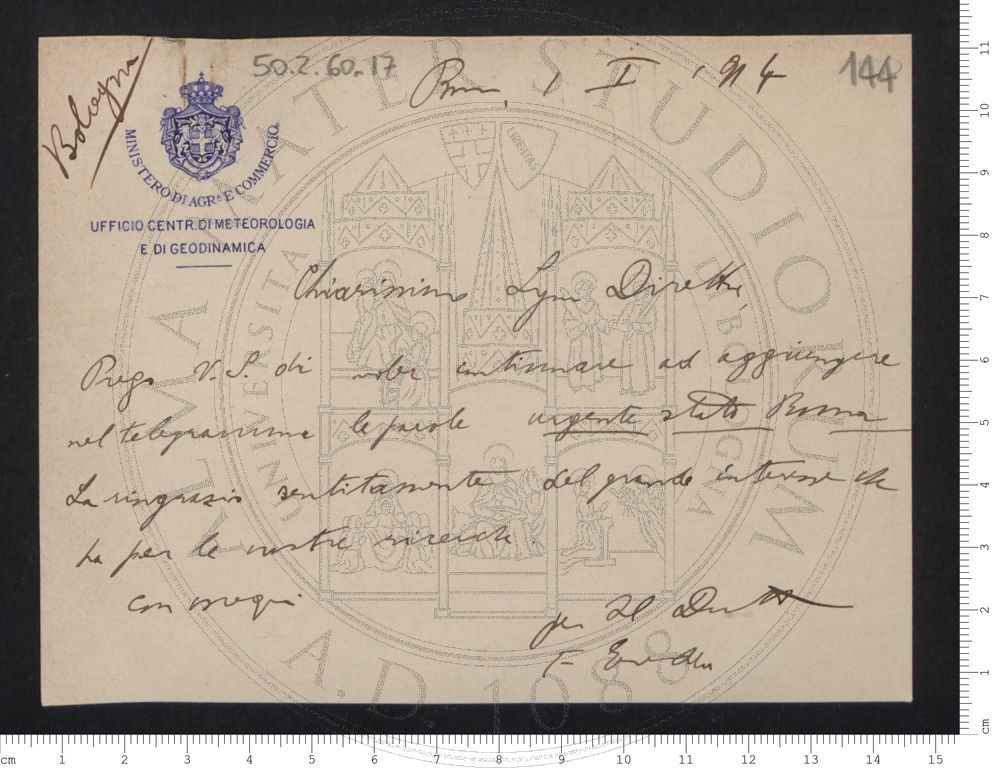 Bologna
50.2.60.17
144
Roma, 1 I 1914
MINISTERO DI AGR.A E COMMERCIO
UFFICIO CENTR. DI METEOROLOGIA
E DI GEODINAMICA
Chiarissimo Sign Direttore,
Prego V. S. di voler continuare ad aggiungere
nel telegramma le parole urgente stato Roma
La ringrazio sentitamente del grande interesse che
ha per le nostre ricerche.
con ossequi
per Il Direttore
ALMA MATER STUDIORUM
UNIVERSITA DI BOLOGNA
A.D. 1088
LIBERTAS
cm 1 2 3 4 5 6 7 8 9 10 11 12 13 14 15
cm 1 2 3 4 5 6 7 8 9 10 11